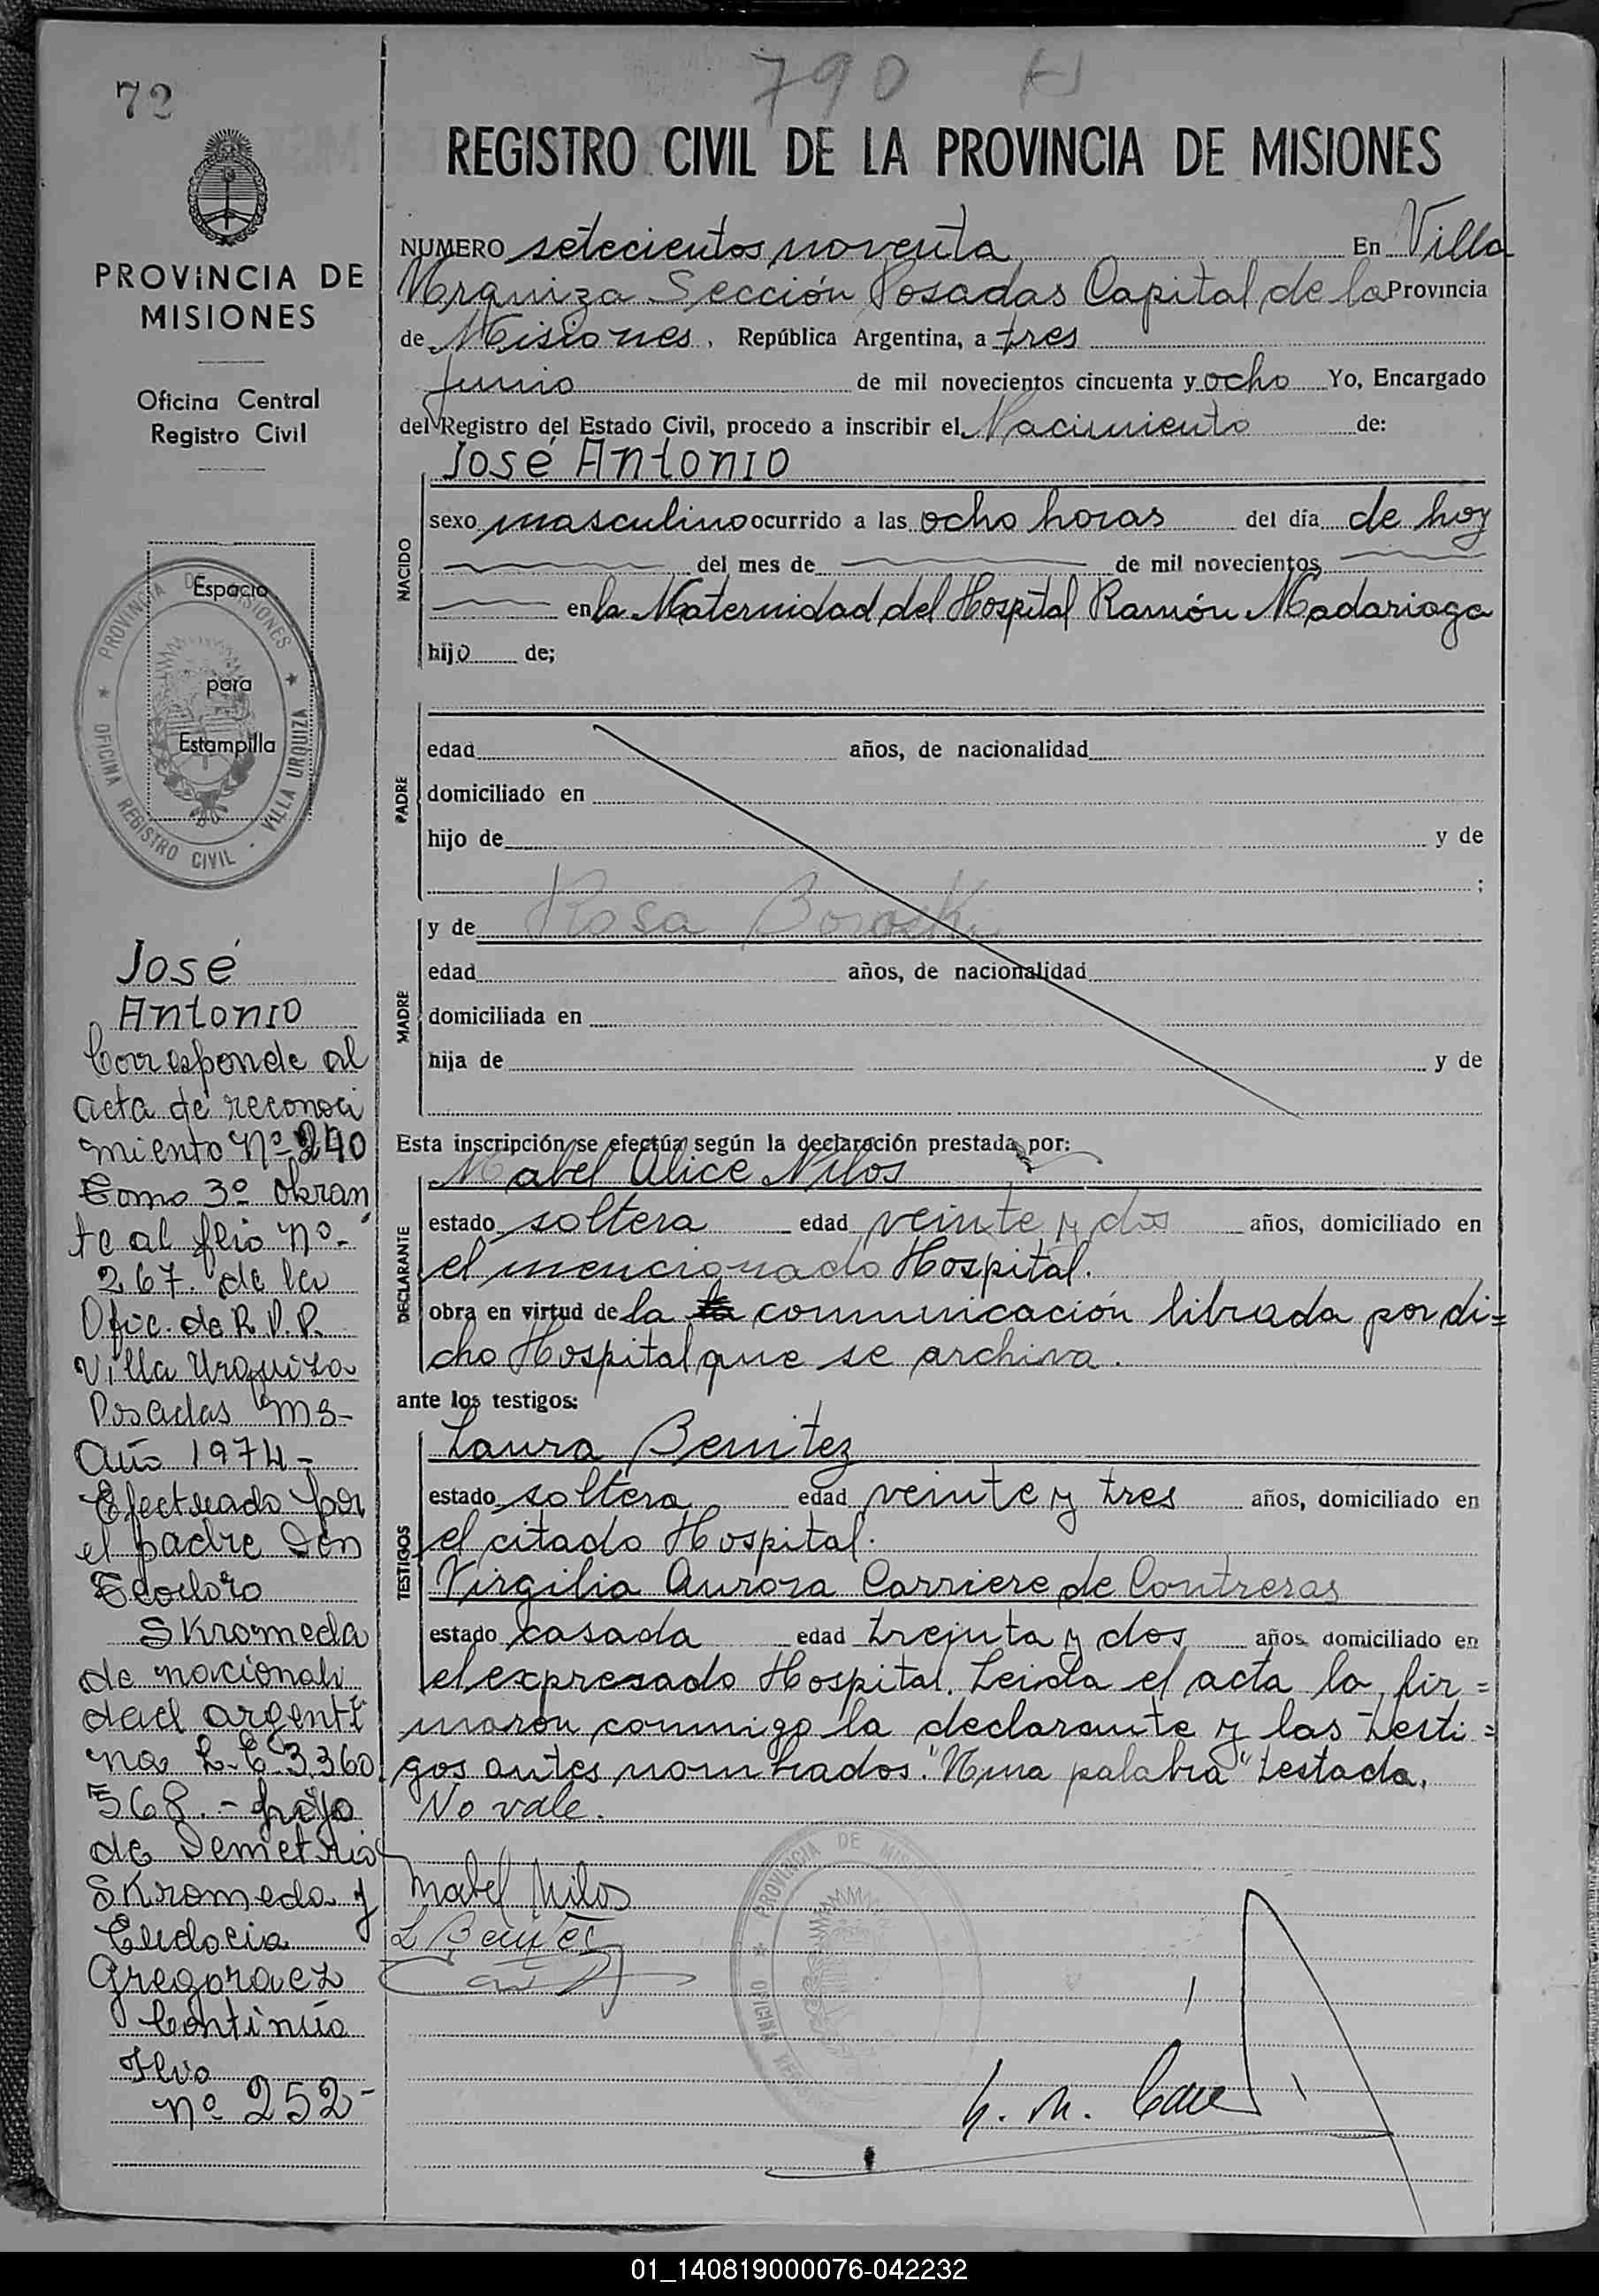 72
790
REGISTRO CIVIL DE LA PROVINCIA DE MISIONES
PROVINCIA DE
MISIONES
Oficina Central
Registro Civil
Espacio
para
Estampilla
PROVINCIA DE MISIONES
OFICINA REGISTRO CIVIL - VILLA URQUIZA
José
Antonio
Corresponde al
acta de reconoci
miento Nº 240
Como 3º obran
te al flio nº-
267. de la
Ofic. de R.P.P.
Villa Urquiza
Posadas Ms-
Año 1974-
Efectuado por
el padre Don
Teodoro
Skromeda
de nacionali
dad argenti
na L.E 3.360.
568.- hijo
de Demetrio
Skromeda y
Eudocia
Gregoraez
Continúa
nº 252-
NUMERO setecientos noventa En Villa
Urquiza Sección Posadas Capital de la Provincia
de Misiones, República Argentina, a tres
junio de mil novecientos cincuenta y ocho Yo, Encargado
del Registro del Estado Civil, procedo a inscribir el Nacimiento de:
José Antonio
NACIDO
sexo masculino ocurrido a las ocho horas del día de hoy
del mes de de mil novecientos
en la Maternidad del Hospital Ramón Madariaga
hijo de;
PADRE
edad años, de nacionalidad
domiciliado en
hijo de y de
;
MADRE
y de Rosa Boroski
edad años, de nacionalidad
domiciliada en
hija de y de
Esta inscripción se efectúa según la declaración prestada por:
DECLARANTE
Mabel Alice Nilos
estado soltera edad veinte y dos años, domiciliado en
el mencionado Hospital.
obra en virtud de la la comunicación librada por di=
cho Hospital que se archiva.
ante los testigos:
TESTIGOS
Laura Benitez
estado soltera edad veinte y tres años, domiciliado en
el citado Hospital.
Virgilia Aurora Carriere de Contreras
estado casada edad treinta y dos años, domiciliado en
el expresado Hospital. Leida el acta la fir=
maron conmigo la declarante y las testi=
gos antes nombrados. "Una palabra" testada.
No vale.
Mabel Nilos
L Benitez
PROVINCIA DE MIS
OFICINA REG
01_140819000076-042232